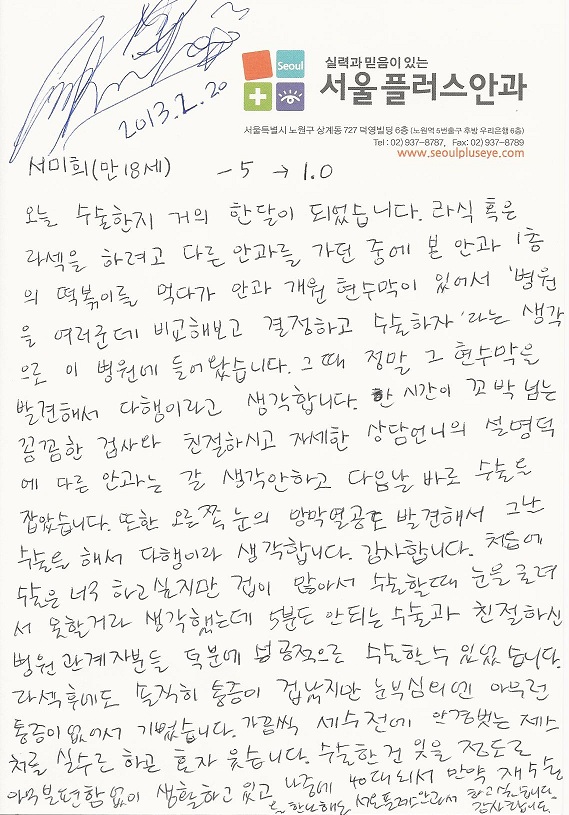 2013.2.20
Seoul
실력과 믿음이 있는
서울플러스안과
서울특별시 노원구 상계동 727 덕영빌딩 6층 (노원역 5번출구 후방 우리은행 6층)
Tel : 02) 937-8787, Fax: 02) 937-8789
www.seoulpluseye.com
서미희(만18세) -5 → 1.0
오늘 수술한지 거의 한달이 되었습니다. 라식 혹은
라섹을 하려고 다른 안과를 가던 중에 본 안과 1층
의 떡볶이를 먹다가 안과 개원 현수막이 있어서 '병원
을 여러군데 비교해보고 결정하고 수술하자'라는 생각
으로 이 병원에 들어왔습니다. 그 때 정말 그 현수막을
발견해서 다행이라고 생각합니다. 한 시간이 꼬박 넘는
꼼꼼한 검사와 친절하시고 자세한 상담언니의 설명덕
에 다른 안과는 갈 생각안하고 다음날 바로 수술을
잡았습니다. 또한 오른쪽 눈의 망막열공도 발견해서 그난
수술을 해서 다행이라 생각합니다. 감사합니다. 처음에
수술은 너무 하고싶지만 겁이 많아서 수술할때 눈을 굴려
서 못할거라 생각했는데 5분도 안되는 수술과 친절하신
병원관계자분들 덕분에 성공적으로 수술할수 있었습니다.
라섹후에도 솔직히 통증이 겁났지만 눈부심외엔 아무런
통증이없어서 기뻤습니다. 가끔씩 세수전에 안경벗는 제스
처를 실수로 하곤 혼자 웃습니다. 수술한건 잊을 정도로
아무불편함없이 생활하고 있고 나중에 40대되서 만약 재수술
을 한다해도 서울플러스안과에서 하고싶습니다.
감사합니다.